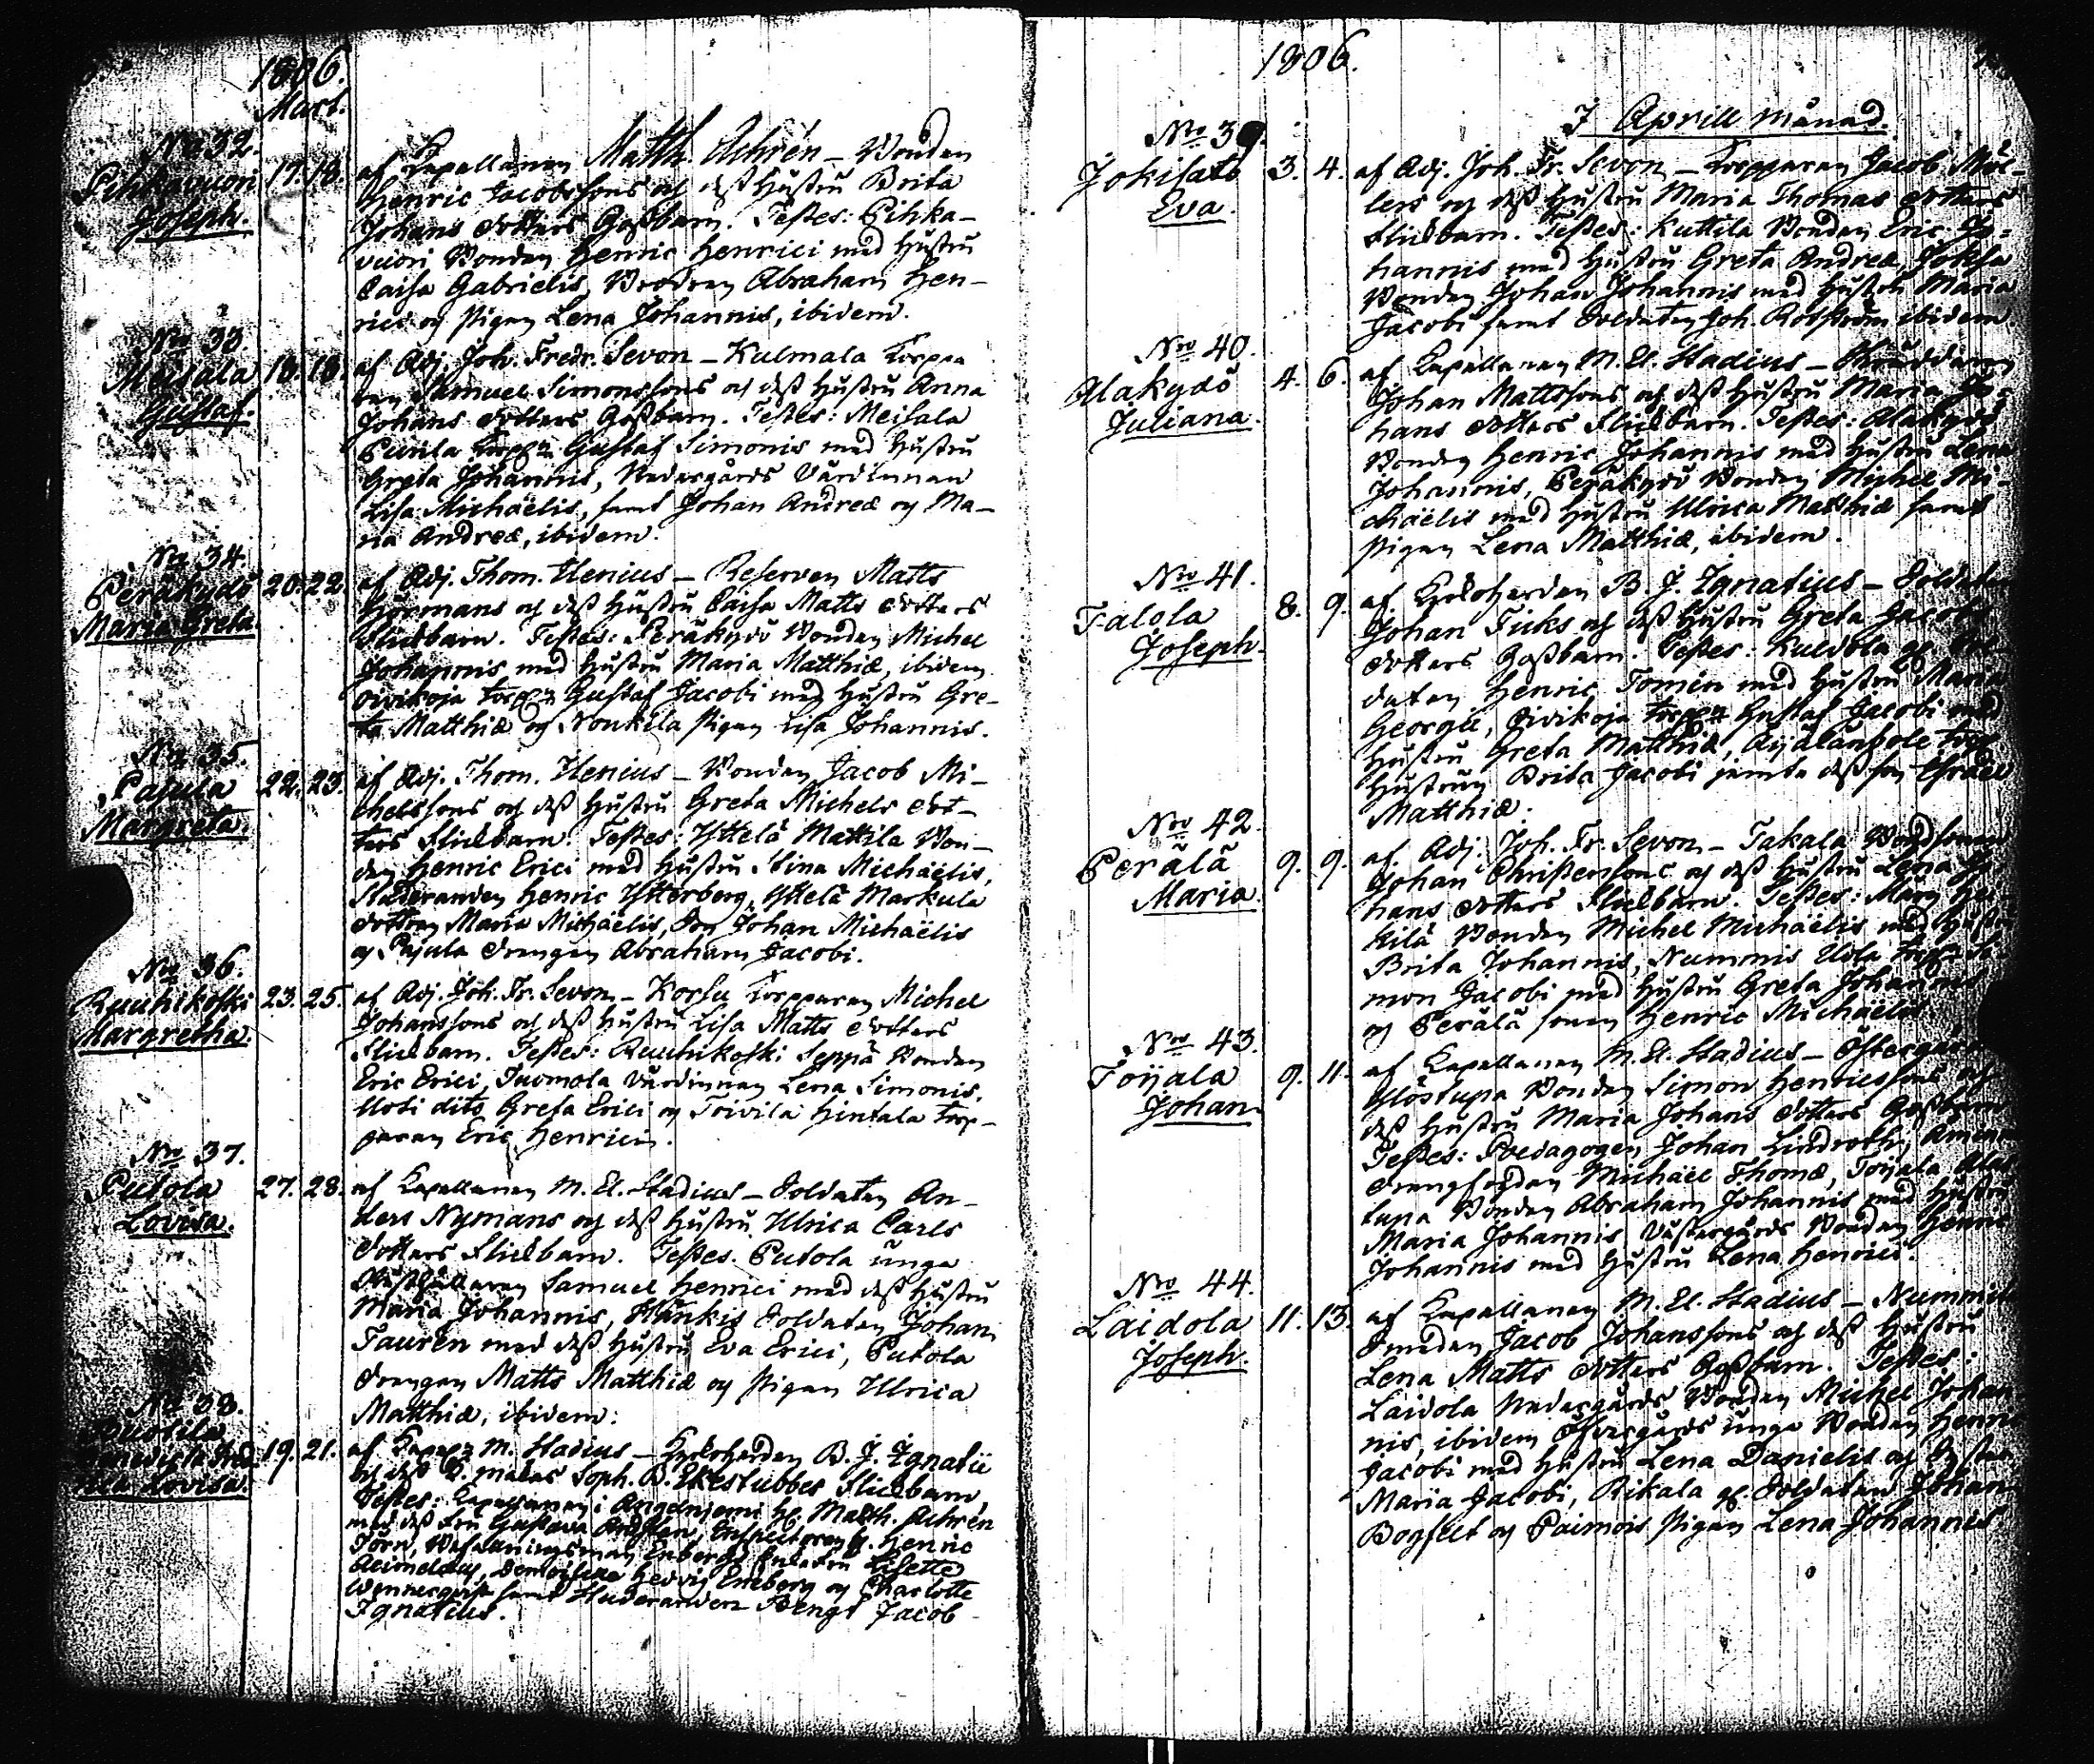 1806.
Mart.
No 32.
Pihkavuori 17. 18. af Capellanen Matth. Achrén – Bonden
Joseph. Henric Jacobssons och dess Hustru Brita
Johans dotters Gossbarn. Testes: Pihka-
vuori Bonden Henric Henrici med Hustru
Caisa Gabrielis, Brodren Abraham Hen-
rici og Pigan Lena Johannis, ibidem.
No 33.
Meisala 18. 18. af Adj. Joh. Fredr. Sevon – Kulmala Torppa
Gustaf. ren Samuel Simonssons och dess Hustru Anna
Johans dotters Gossbarn. Testes: Meisala
Torp:n Gustaf Simonis med Hustru
Greta Johannis, Nedergårds Värdinnan
Lisa Michaëlis, samt Johan Andreæ og Ma-
ria Andreæ, ibidem.
No 34.
Peräkydö 20. 22. af Adj. Thom. Ilenius – Reserven Matts
Maria Greta. Hörmans och dess Hustru Caisa Matts dotters
Flickbarn. Testes: Peräkydö Bonden Michel
Johannis med Hustru Maria Matthiæ, ibidem
Oivikoja torp:n Gustaf Jacobi med Hustru Gre-
ta Matthiæ og Noukila Pigan Lisa Johannis.
No 35.
Pajula 22. 23. af Adj. Thom. Ilenius – Bonden Jacob Mi-
Margreta. chelssons och dess Hustru Greta Michels dot-
ters Flickbarn. Testes: Yttelä Mattila Bon-
den Henric Erici med Hustru Stina Michaëlis,
Studeranden Henric Ytterberg, Yttelä Markula
dottren Maria Michaëlis, Son Johan Michaëlis
og Pajula Drengen Abraham Jacobi.
No 36.
Ruuhikoski 23. 25. af Adj. Joh. Fr. Sevon – Korsu Torpparen Michel
Margretha. Johanssons och dess Hustru Lisa Matts dotters
Flickbarn. Testes: Ruuhikoski Seppä Bonden
Eric Erici, Tuomola Värdinnan Lena Simonis,
Uoti dito Greta Erici og Toivila Hintala torp-
paren Eric Henrici.
No 37.
Putola 27. 28. af Capellanen M. El. Stadius – Soldaten An-
Lovisa. ders Nymans och dess Hustru Ulrica Carls
dotters Flickbarn. Testes: Putola unga
Rusthållaren Samuel Henrici med dess Hustru
Maria Johannis, Hankis Soldaten Johan
Taurén med dess Hustru Eva Erici, Putola
Drengen Matts Matthiæ og Pigan Ulrica
Matthiæ, ibidem.
No 38.
19. 21. af Capel:n M. Stadius – Kyrkoherden B. J. Ignatii
Lovisa. och dess Soph. B. Ekestubbes Flickbarn,
Testes: Capellanen i Angelniemi H. Matth. Achrén
med dess Fru Gustava, Inspectoren H. Henric
Törn, Lisette
Hedvig Eneberg og Charlotte
samt Studeranden Bengt Jacob
Ignatius.
1806.
I Aprill månad.
No 39.
Jokisato 3. 4. af Adj. Joh. Fr. Sevon – Torpparen Jacob Mül-
Eva. lers och dess Hustru Maria Thomas dotters
Flickbarn. Testes: Kuttila Bonden Eric Jo-
hannis med Hustru Greta Andreæ, Joksa
Bonden Johan Johannis med Hustru Maria
Jacobi samt Soldaten Joh. Rosström ibidem
No 40.
Alakydö 4. 6. af Capellanen M. El. Stadius – Skräddaren
Juliana. Johan Mattssons och dess Hustru Maria Jo-
hans dotters Flickbarn. Testes: Alakydö
Bonden Henric Johannis med Hustru Lena
Johannis, Peräkydö Bonden Michel Mi-
chaëlis med Hustru Ulrica Matthiæ samt
Pigan Lena Matthiæ, ibidem.
No 41.
Talola 8. 9. af Kyrkoherden B. J. Ignatius – Soldaten
Joseph. Johan Ficks och dess Hustru Greta Jacobs
dotters Gossbarn. Testes: Kuldola
daten Henric Tomén med Hustru Maria
Georgii, Oivikoja torp:n Gustaf Jacobi med
Hustru Greta Matthiæ, Äijälänpole
Hustrun Brita Jacobi jämte dess son Israel
Matthiæ.
No 42.
Perälä 9. 9. af Adj. Joh. Fr. Sevon – Takala
Maria. Johan Christerssons och dess Hustru Lena Jo-
hans dotters Flickbarn. Testes:
kilä Bonden Michel Michaëlis med Hustru
Brita Johannis, Nummis Uola Si-
mon Jacobi med Hustru Greta Johannis
og Perälä sonen Henric Michaëlis.
No 43.
Toijala 9. 11. af Capellanen M. El. Stadius – Östergårds
Johan. Ylöstupa Bonden Simon Henricssons och
dess Hustru Maria Johans dotters Gossbarn
Testes: Pædagogen Johan Lindroth,
Drengfogden Michaël Thomæ, Toijala Alas
tupa Bonden Abraham Johannis med Hustru
Maria Johannis Västergårds Bonden Henric
Johannis med Hustru Lena Henrici.
No 44.
Laidola 11. 13. af Capellanen M. El. Stadius –
Joseph. Smeden Jacob Johanssons och dess Hustru
Lena Matts dotters Gossbarn. Testes:
Laidola Nedergårds Bonden Michel Johan
nis, ibidem Öfvergårds unga Bonden Henric
Jacobi med Hustru Lena Danielis og Syster
Maria Jacobi, Rikala Soldaten Johan
Bogfelt og Paimois Pigan Lena Johannis